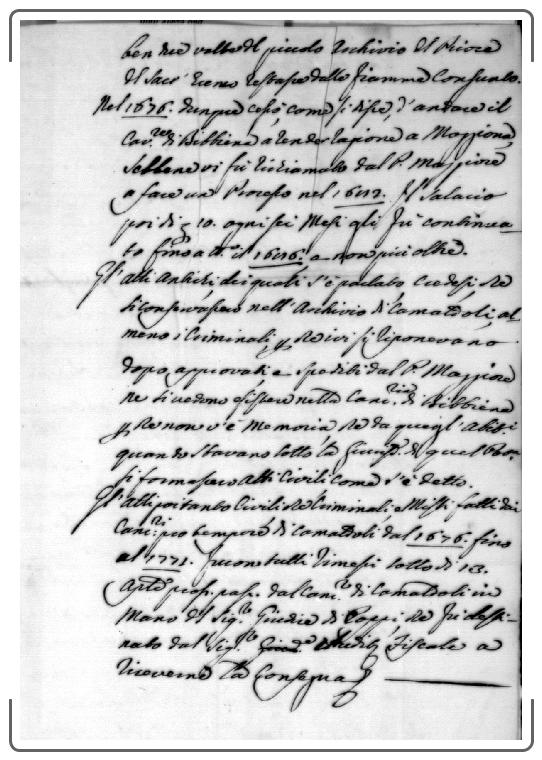 ben due volte del piccolo Archivio del Priore
del Sacr' Eremo restasse dalle fiamme consunto.
Nel 1676. dunque cessò, come si disse, d'andare il
Canre. di Bibbiena a render ragione a Moggiona,
Sebbene vi fù richiamato dal P. Maggiore
a fare un Processo nel 1692. Il Salario
poi di 10. ogni sei Mesi gli fù continua-
to fino a tt. il 1696. e non più oltre.
Gl'atti Antichi dei quali s'è parlato credesi che
si conservassero nell'Archivio di Camaldoli, al-
meno i Criminali, che ivi si riponevano
dopo approvati e spediti dal P. Maggiore
ne si vedono esistere nella Canria. di Bibbiena
che non v'è memoria che da quegl'Abiti
quando stavano sotto la Giurisd. di quel
si formassero atti Civili come s'è detto.
Gl'atti pertanto Civili che Criminali, e Misti fatti dai
Canri. pro tempore di Camaldoli dal 1676. fino
al 1771. furon tutti rimessi sotto di 18.
Aple pross. pass. dal Canre. di Camaldoli in
Mano del Sigre. Giudice di Poppi che fù desti-
nato dal Sigre. Audite Fiscale a
riceverne la Consegna